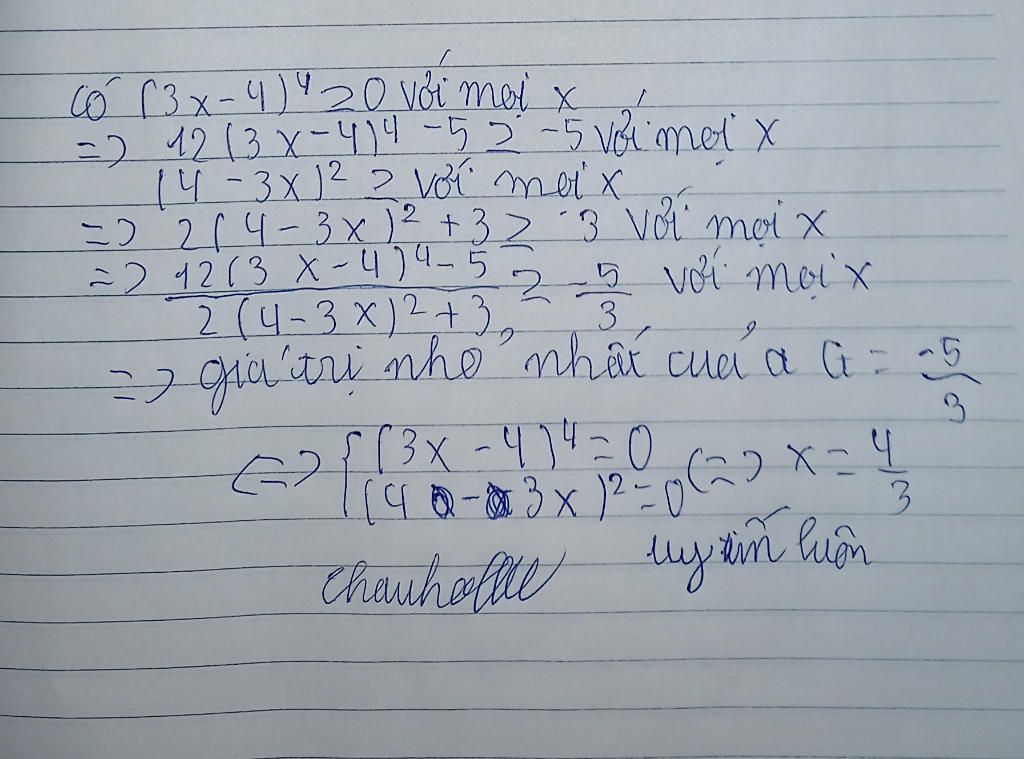 có (3x-4)^4 ≥ 0 với mọi x
=> 12(3x-4)^4 -5 ≥ -5 với mọi x
(4-3x)^2 ≥ với mọi x
=> 2(4-3x)^2 + 3 ≥ 3 với mọi x
=> \frac{12(3x-4)^4-5}{2(4-3x)^2+3} ≥ \frac{-5}{3} với mọi x
=> giá trị nhỏ nhất của a G = \frac{-5}{3}
<=> { (3x-4)^4 = 0
(4-3x)^2 = 0 <=> x = \frac{4}{3}
uy tín luôn